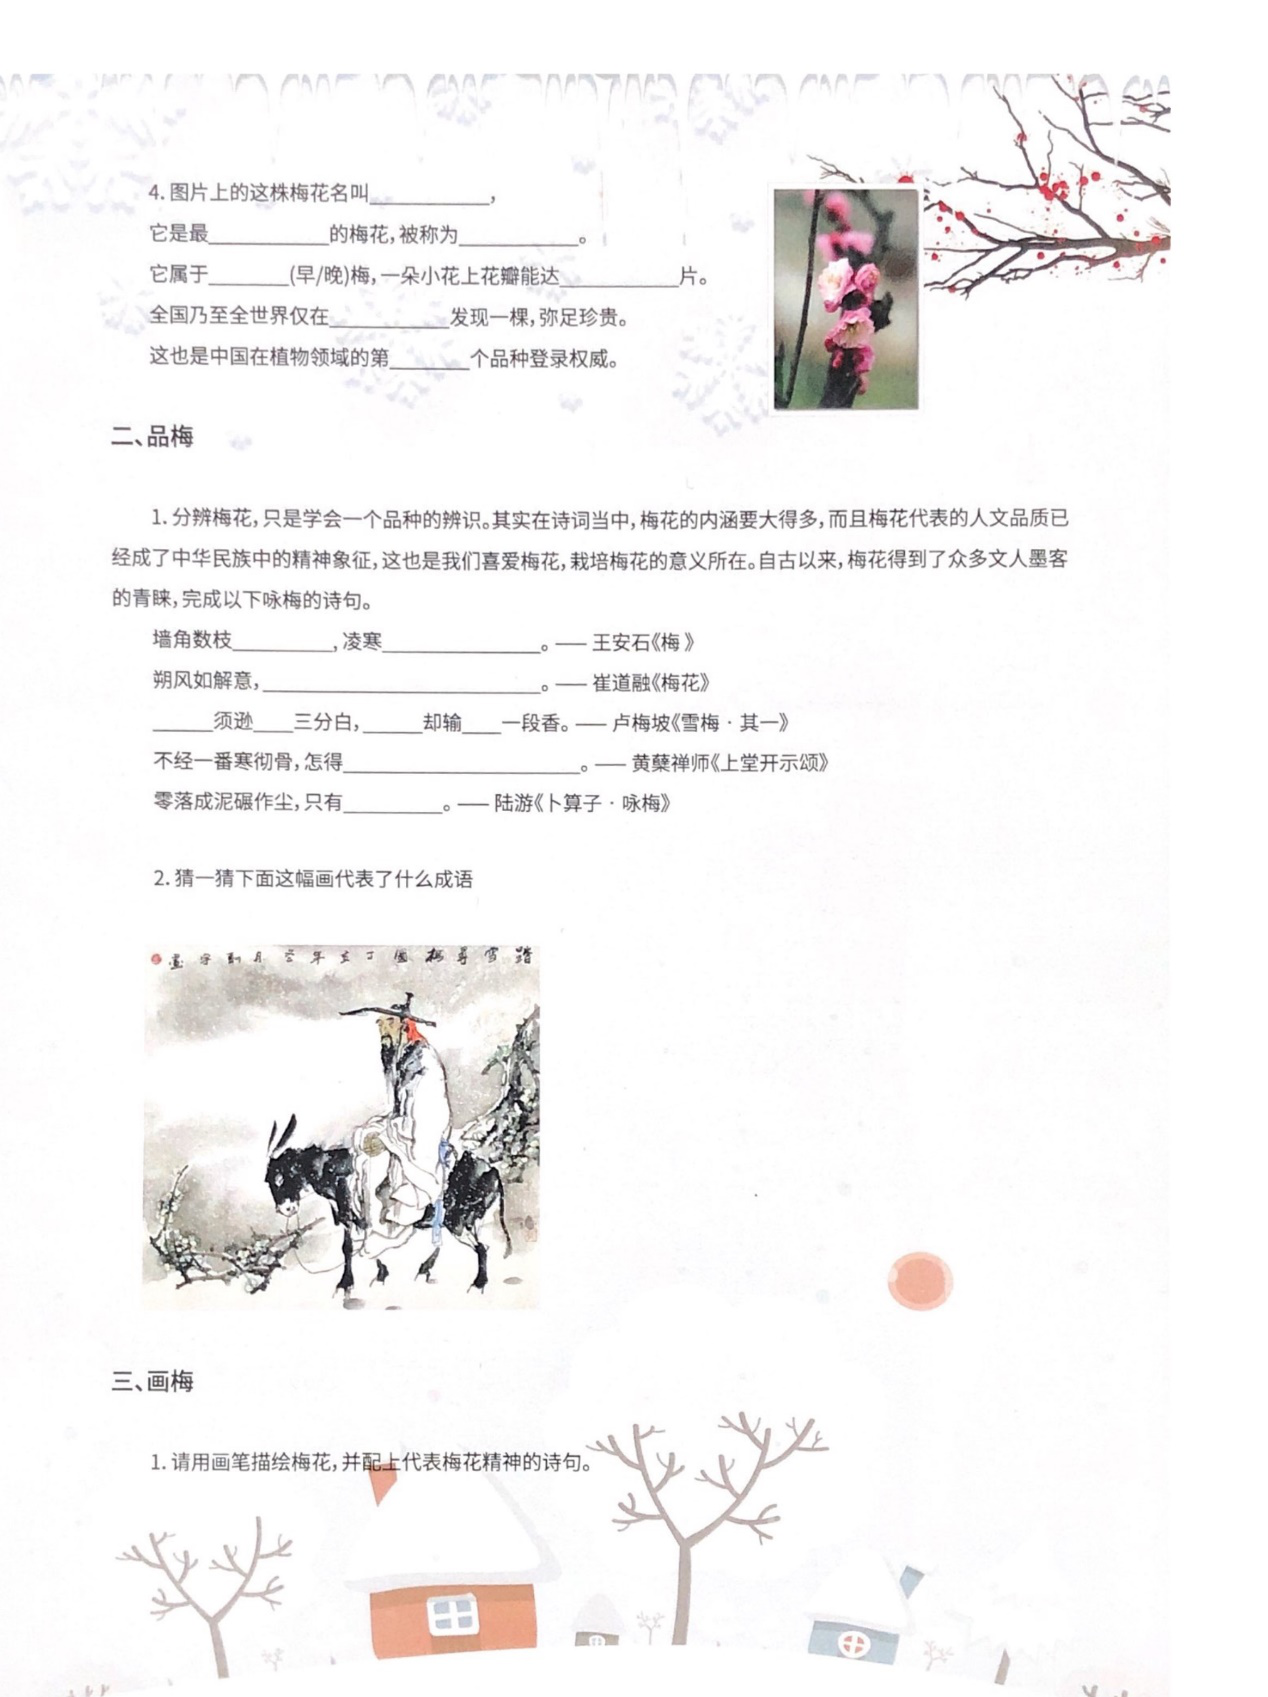 4. 图片上的这株梅花名叫____________，
它是最____________的梅花，被称为____________。
它属于________(早/晚)梅，一朵小花上花瓣能达____________片。
全国乃至全世界仅在____________发现一棵，弥足珍贵。
这也是中国在植物领域的第________个品种登录权威。
二、品梅
1. 分辨梅花，只是学会一个品种的辨识。其实在诗词当中，梅花的内涵要大得多，而且梅花代表的人文品质已
经成了中华民族中的精神象征，这也是我们喜爱梅花，栽培梅花的意义所在。自古以来，梅花得到了众多文人墨客
的青睐，完成以下咏梅的诗句。
墙角数枝__________，凌寒________________。—— 王安石《梅 》
朔风如解意，____________________________。—— 崔道融《梅花》
______须逊____三分白，______却输____一段香。—— 卢梅坡《雪梅 · 其一》
不经一番寒彻骨，怎得________________________。—— 黄蘖禅师《上堂开示颂》
零落成泥碾作尘，只有__________。—— 陆游《卜算子 · 咏梅》
2. 猜一猜下面这幅画代表了什么成语
踏雪寻梅图丁亥年
三、画梅
1. 请用画笔描绘梅花，并配上代表梅花精神的诗句。